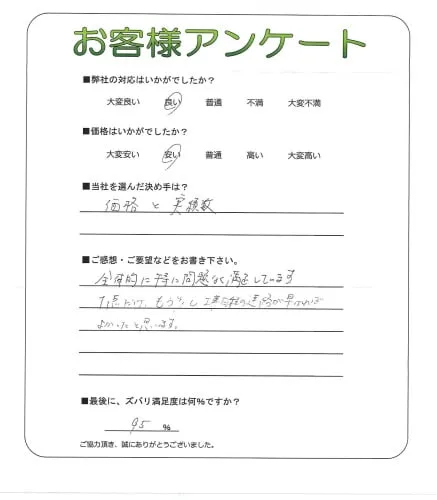 お客様アンケート
■弊社の対応はいかがでしたか?
大変良い 良い 普通 不満 大変不満
■価格はいかがでしたか?
大変安い 安い 普通 高い 大変高い
■当社を選んだ決め手は?
価格と実績数
■ご感想・ご要望などをお書き下さい。
全体的に特に問題なく満足しています
1点だけ、もう少し工事の連絡が早ければ
よかったと思います。
■最後に、ズバリ満足度は何%ですか?
95 %
ご協力頂き、誠にありがとうございました。